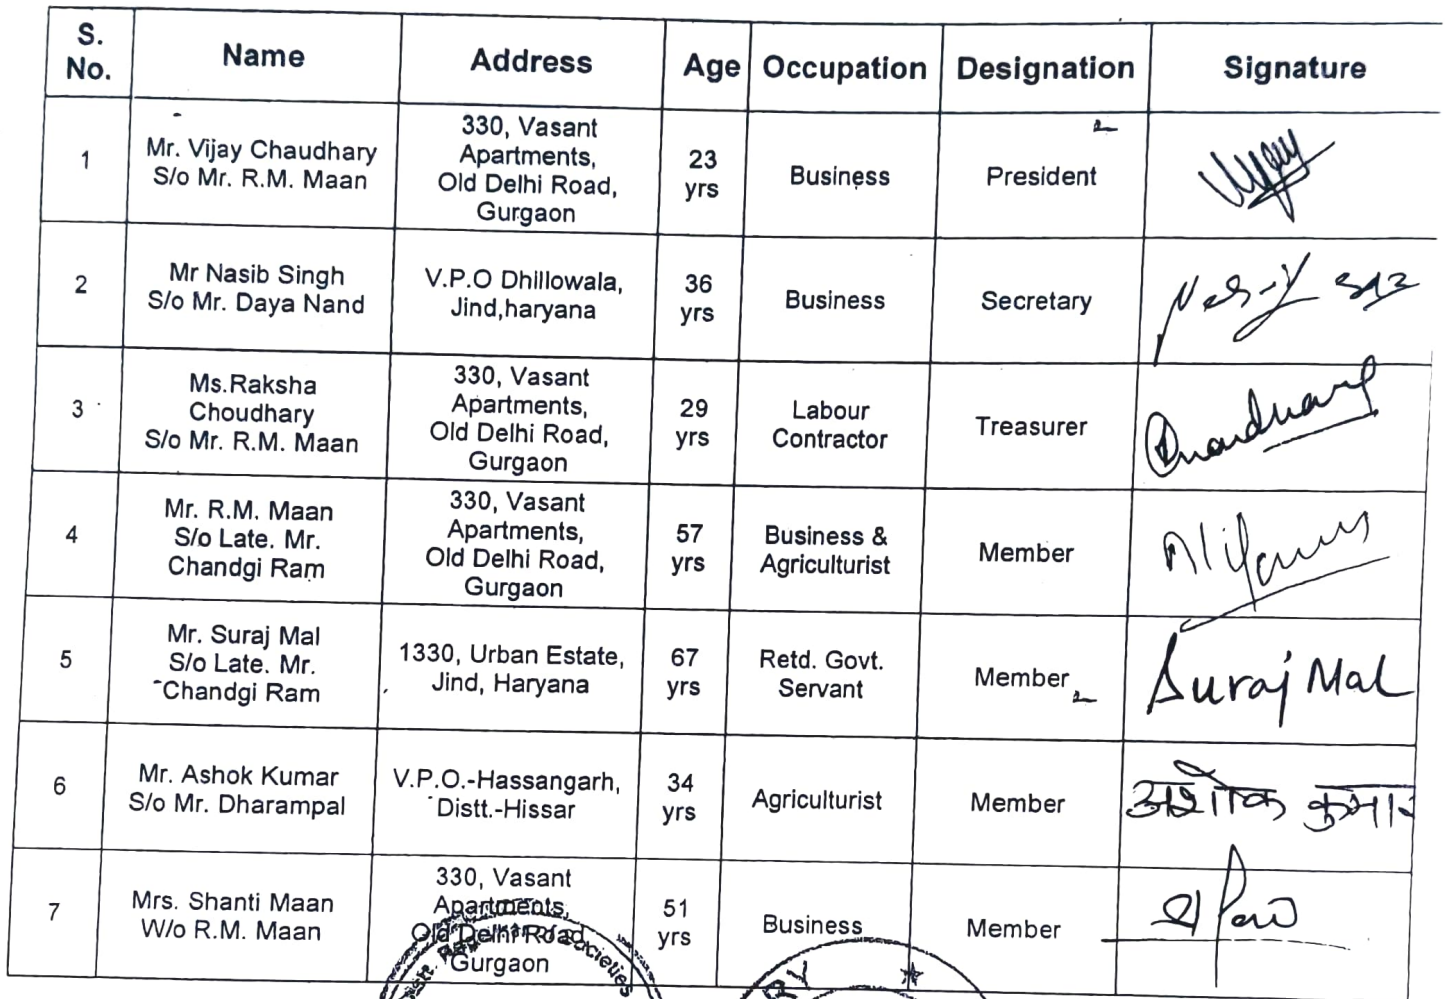 S. No. Name Address Age Occupation Designation Signature
1 Mr. Vijay Chaudhary S/o Mr. R.M. Maan 330, Vasant Apartments, Old Delhi Road, Gurgaon 23 yrs Business President
2 Mr Nasib Singh S/o Mr. Daya Nand V.P.O Dhillowala, Jind,haryana 36 yrs Business Secretary
3 Ms.Raksha Choudhary S/o Mr. R.M. Maan 330, Vasant Apartments, Old Delhi Road, Gurgaon 29 yrs Labour Contractor Treasurer
4 Mr. R.M. Maan S/o Late. Mr. Chandgi Ram 330, Vasant Apartments, Old Delhi Road, Gurgaon 57 yrs Business & Agriculturist Member
5 Mr. Suraj Mal S/o Late. Mr. Chandgi Ram 1330, Urban Estate, Jind, Haryana 67 yrs Retd. Govt. Servant Member Suraj Mal
6 Mr. Ashok Kumar S/o Mr. Dharampal V.P.O.-Hassangarh, Distt.-Hissar 34 yrs Agriculturist Member अशोक कुमार
7 Mrs. Shanti Maan W/o R.M. Maan 330, Vasant Apartments, Old Delhi Road, Gurgaon 51 yrs Business Member
of Societies